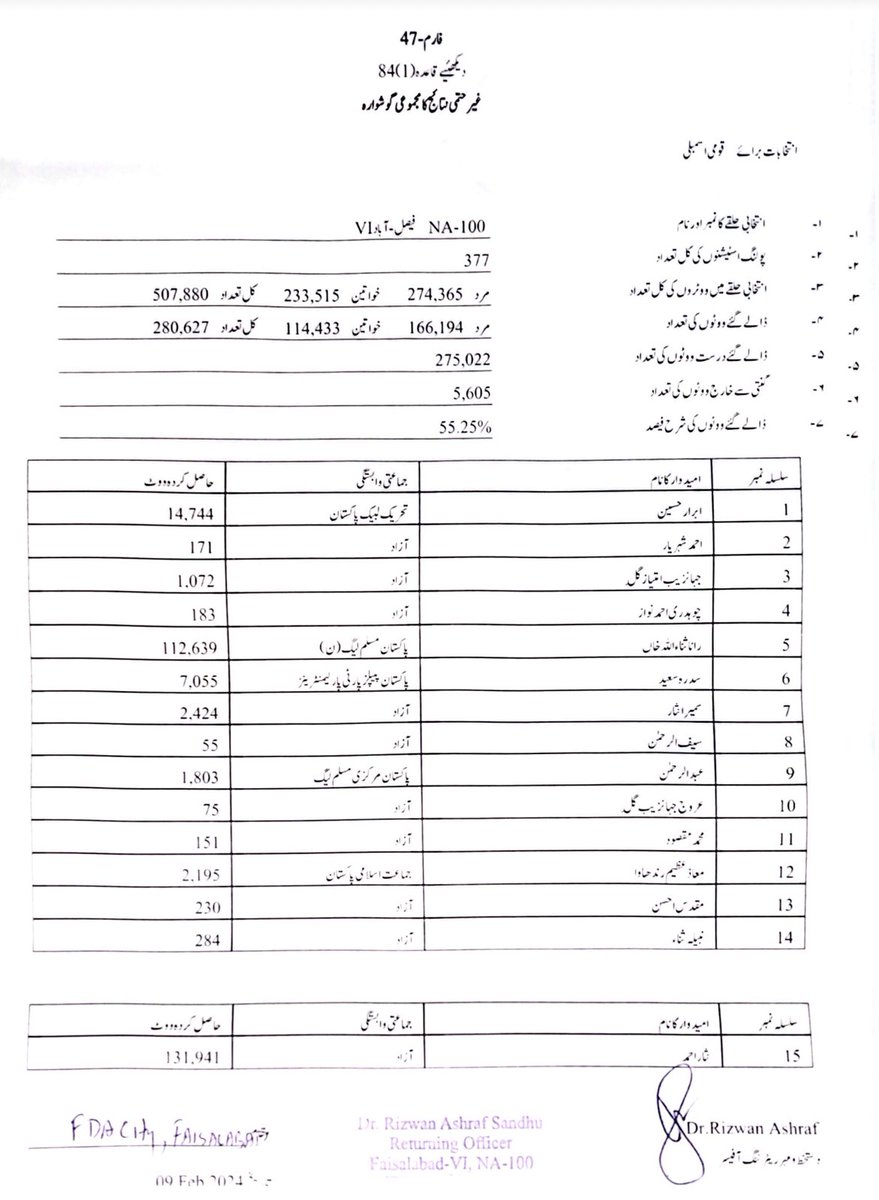 فارم-47
دیکھئیے قاعدہ(1)84
غیر حتمی نتائج کا مجموعی گوشوارہ
انتخابات برائے قومی اسمبلی
۱- ۱- انتخابی حلقے کا نمبر اور نام NA-100 فیصل-آباد VI
۲- ۲- پولنگ اسٹیشنوں کی کل تعداد 377
۳- ۳- انتخابی حلقے میں ووٹروں کی کل تعداد مرد 274,365 خواتین 233,515 کل تعداد 507,880
۴- ۴- ڈالے گئے ووٹوں کی تعداد مرد 166,194 خواتین 114,433 کل تعداد 280,627
۵- ۵- ڈالے گئے درست ووٹوں کی تعداد 275,022
۶- ۶- گنتی سے خارج ووٹوں کی تعداد 5,605
۷- ۷- ڈالے گئے ووٹوں کی شرح فیصد 55.25%
سلسلہ نمبر امیدوار کا نام جماعتی وابستگی حاصل کردہ ووٹ
1 ابرار حسین تحریک لبیک پاکستان 14,744
2 احمد شہریار آزاد 171
3 جہانزیب امتیاز گل آزاد 1,072
4 چوہدری احمد نواز آزاد 183
5 رانا ثناءاللہ خاں پاکستان مسلم لیگ (ن) 112,639
6 سدرہ سعید پاکستان پیپلز پارٹی پارلیمنٹرینز 7,055
7 سمیرا نثار آزاد 2,424
8 سیف الرحمٰن آزاد 55
9 عبدالرحمٰن پاکستان مرکزی مسلم لیگ 1,803
10 عروج جہانزیب گل آزاد 75
11 محمد مقصود آزاد 151
12 معاذ عظیم رندھاوا جماعت اسلامی پاکستان 2,195
13 مقدس احسن آزاد 230
14 نبیلہ ثناء آزاد 284
سلسلہ نمبر امیدوار کا نام جماعتی وابستگی حاصل کردہ ووٹ
15 نثار احمد آزاد 131,941
Dr.Rizwan Ashraf
دستخط و مہر ریٹرننگ آفیسر
Dr. Rizwan Ashraf Sandhu
Returning Officer
Faisalabad-VI, NA-100
FDA City, FAISALABAD
09 Feb 2024